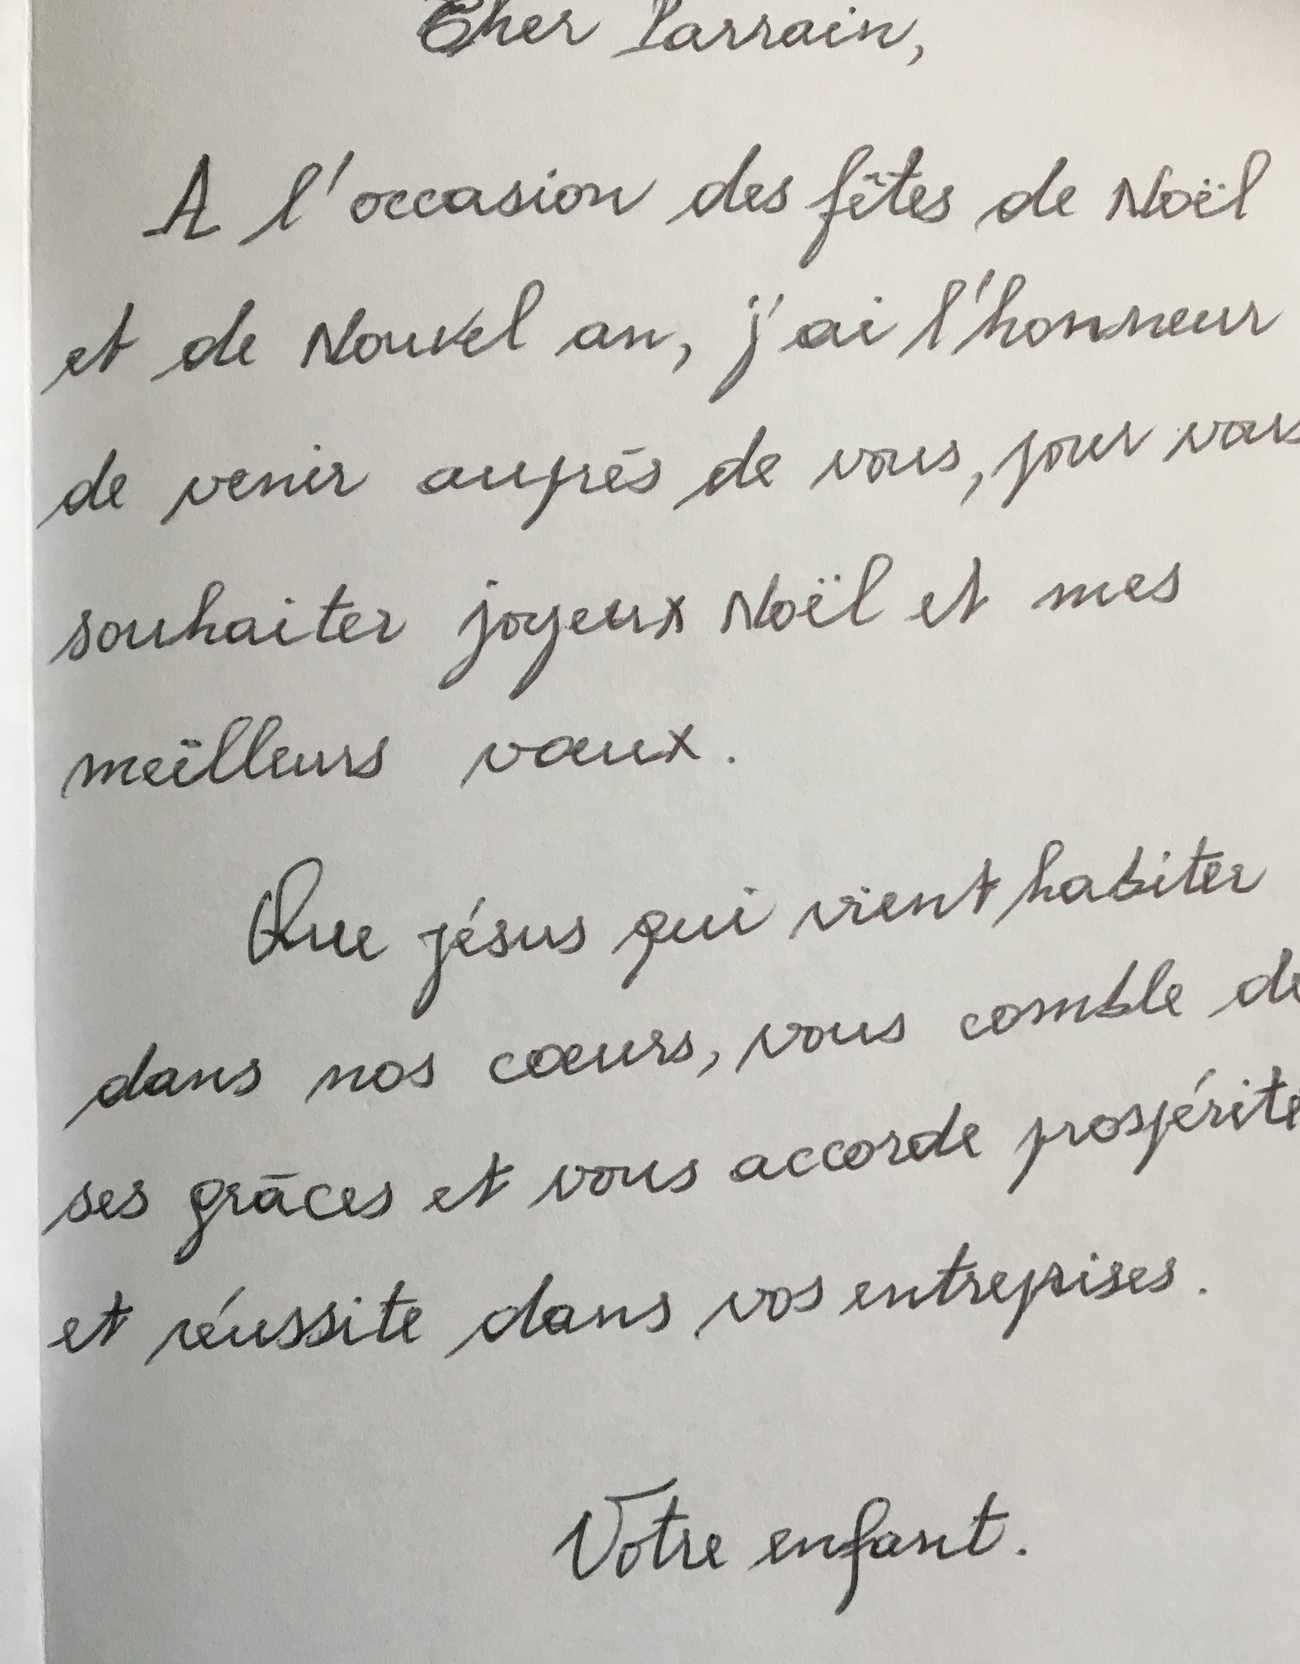 Cher Parrain,
A l'occasion des fêtes de Noël
et de Nouvel an, j'ai l'honneur
de venir auprés de vous, pour vous
souhaiter joyeux Noël et mes
meilleurs vœux.
Que jésus qui vient habiter
dans nos cœurs, vous comble de
ses grâces et vous accorde prospérité
et réussite dans vos entreprises.
Votre enfant.